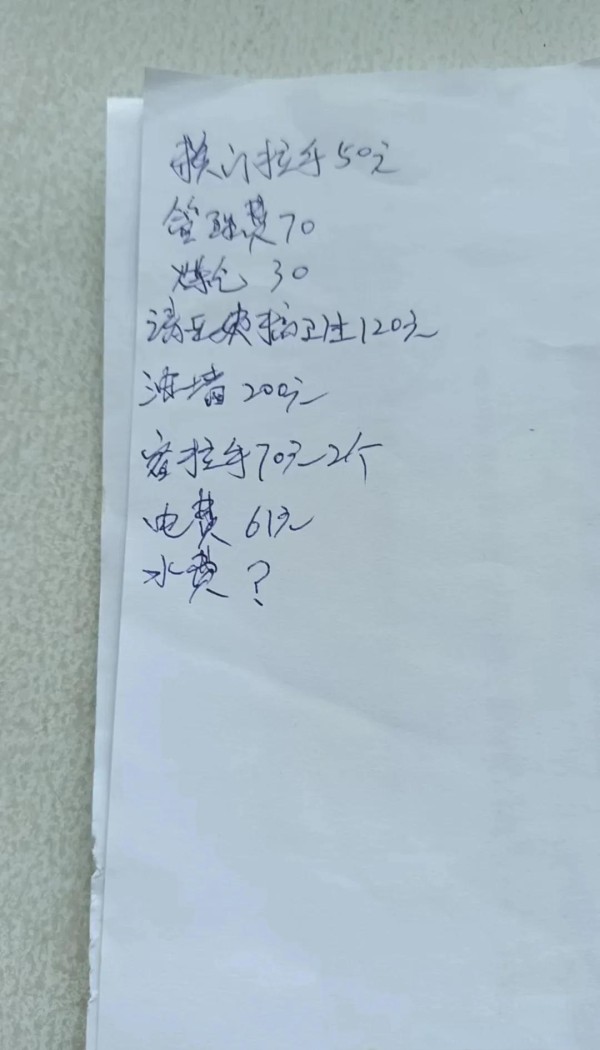 换门拉手50元
管理费70
煤气 30
请玉姨搞卫生120元
油墙 200元
窗拉手70元2个
电费 61元
水费 ?